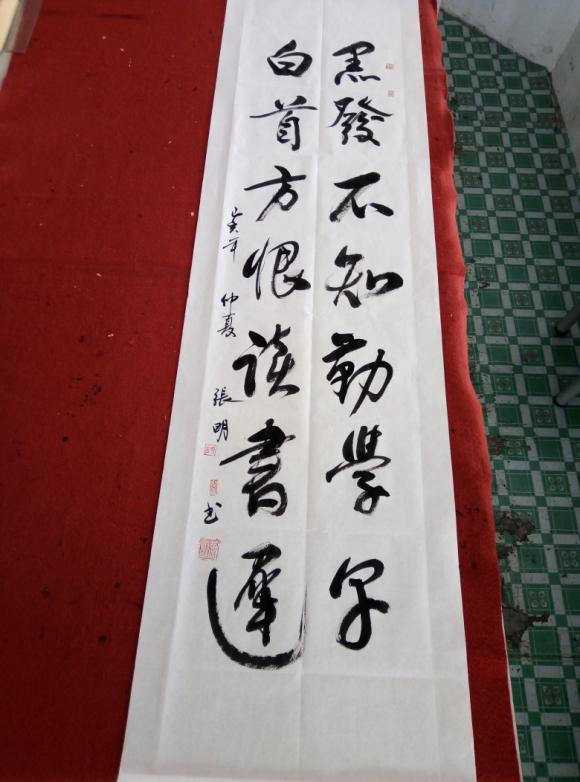 黑發不知勤學早
白首方恨读書遲
年 仲夏 張明 书